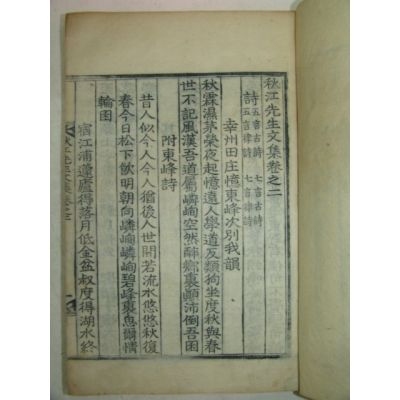 秋江先生文集卷之二
詩 五言古詩 七言古詩 五言律詩 七言律詩
幸州田庄憶東峰次別我韻
秋霖濕茅榮夜起憶遠人學道反類狗坐度秋與春
世不記風漢吾道屬嶙峋空然醉鄉裏顚沛倒吾困
附東峰詩
昔人似今人今人猶後人世間若流水悠悠秋復
春今日松下飮明朝向嶙峋嶙峋碧峰裏思爾情
輪囷
宿江浦蓬廬得落月低金盆叔度得湖水終
秋江先生文集卷之二